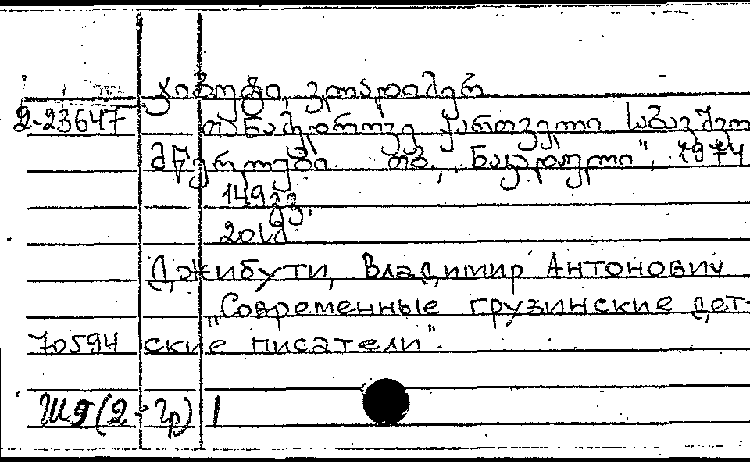 ჯიბუტი, ვლადიმერ
2-23647 თანამედროვე ქართველი საბავშვო
მწერლები. თბ., „ნაკადული", 1974
149 გვ.
Джибути, Владимир Антонович
„Современные грузинские дет-
70594 ские писатели".
Ш9(2=Гр) 1